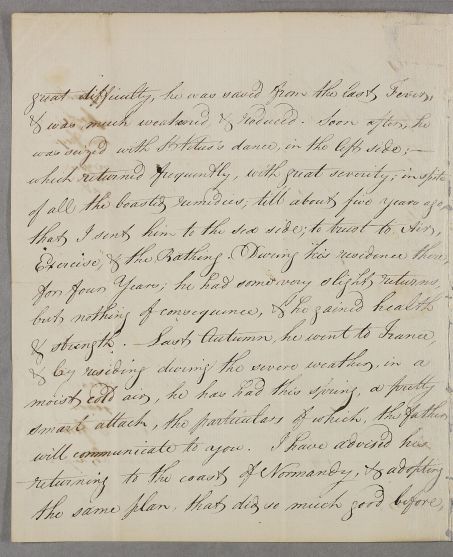 great difficulty, he was saved from the last Fever,
& was much weakened & reduced. Soon after, he
was seized with St Vitus's dance, in the left side; —
which returned frequently, with great severity; in spite
of all the boasted remedies; till about five years ago,
that I sent him to the sea side; to trust to Air,
Exercise, & the Bathing. During his residence there,
for four Years; he had some very slight returns,
but nothing of consequence, & he gained health
& strength. — Last Autumn, he went to France,
& by residing during the severe weather, in a
moist cold air, he has had this spring, a pretty
smart attack, the particulars of which, the father
will communicate to you. I have advised his
returning to the coast of Normandy, & adopting
the same plan, that did so much good before,